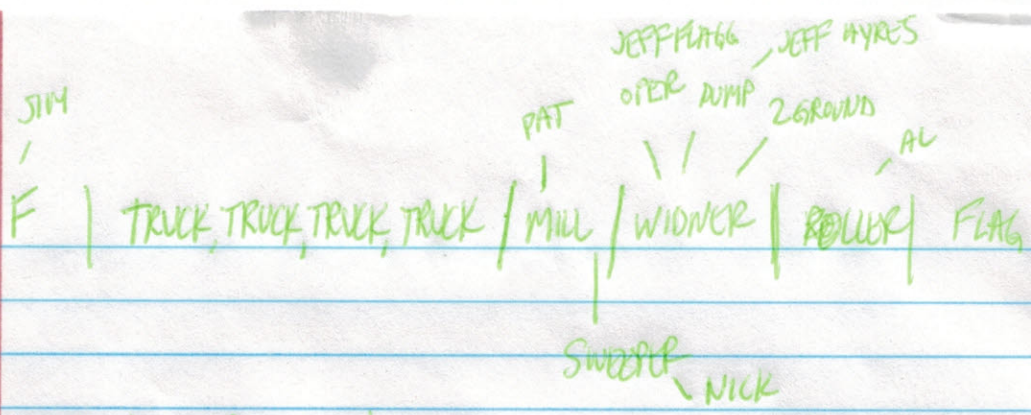 JEFF FLAGG JEFF AYRES
JIM OPER DUMP 2 GROUND
PAT AL
F | TRUCK, TRUCK, TRUCK, TRUCK | MILL | WIDNER | ROLLER | FLAG
SWEEPER
NICK